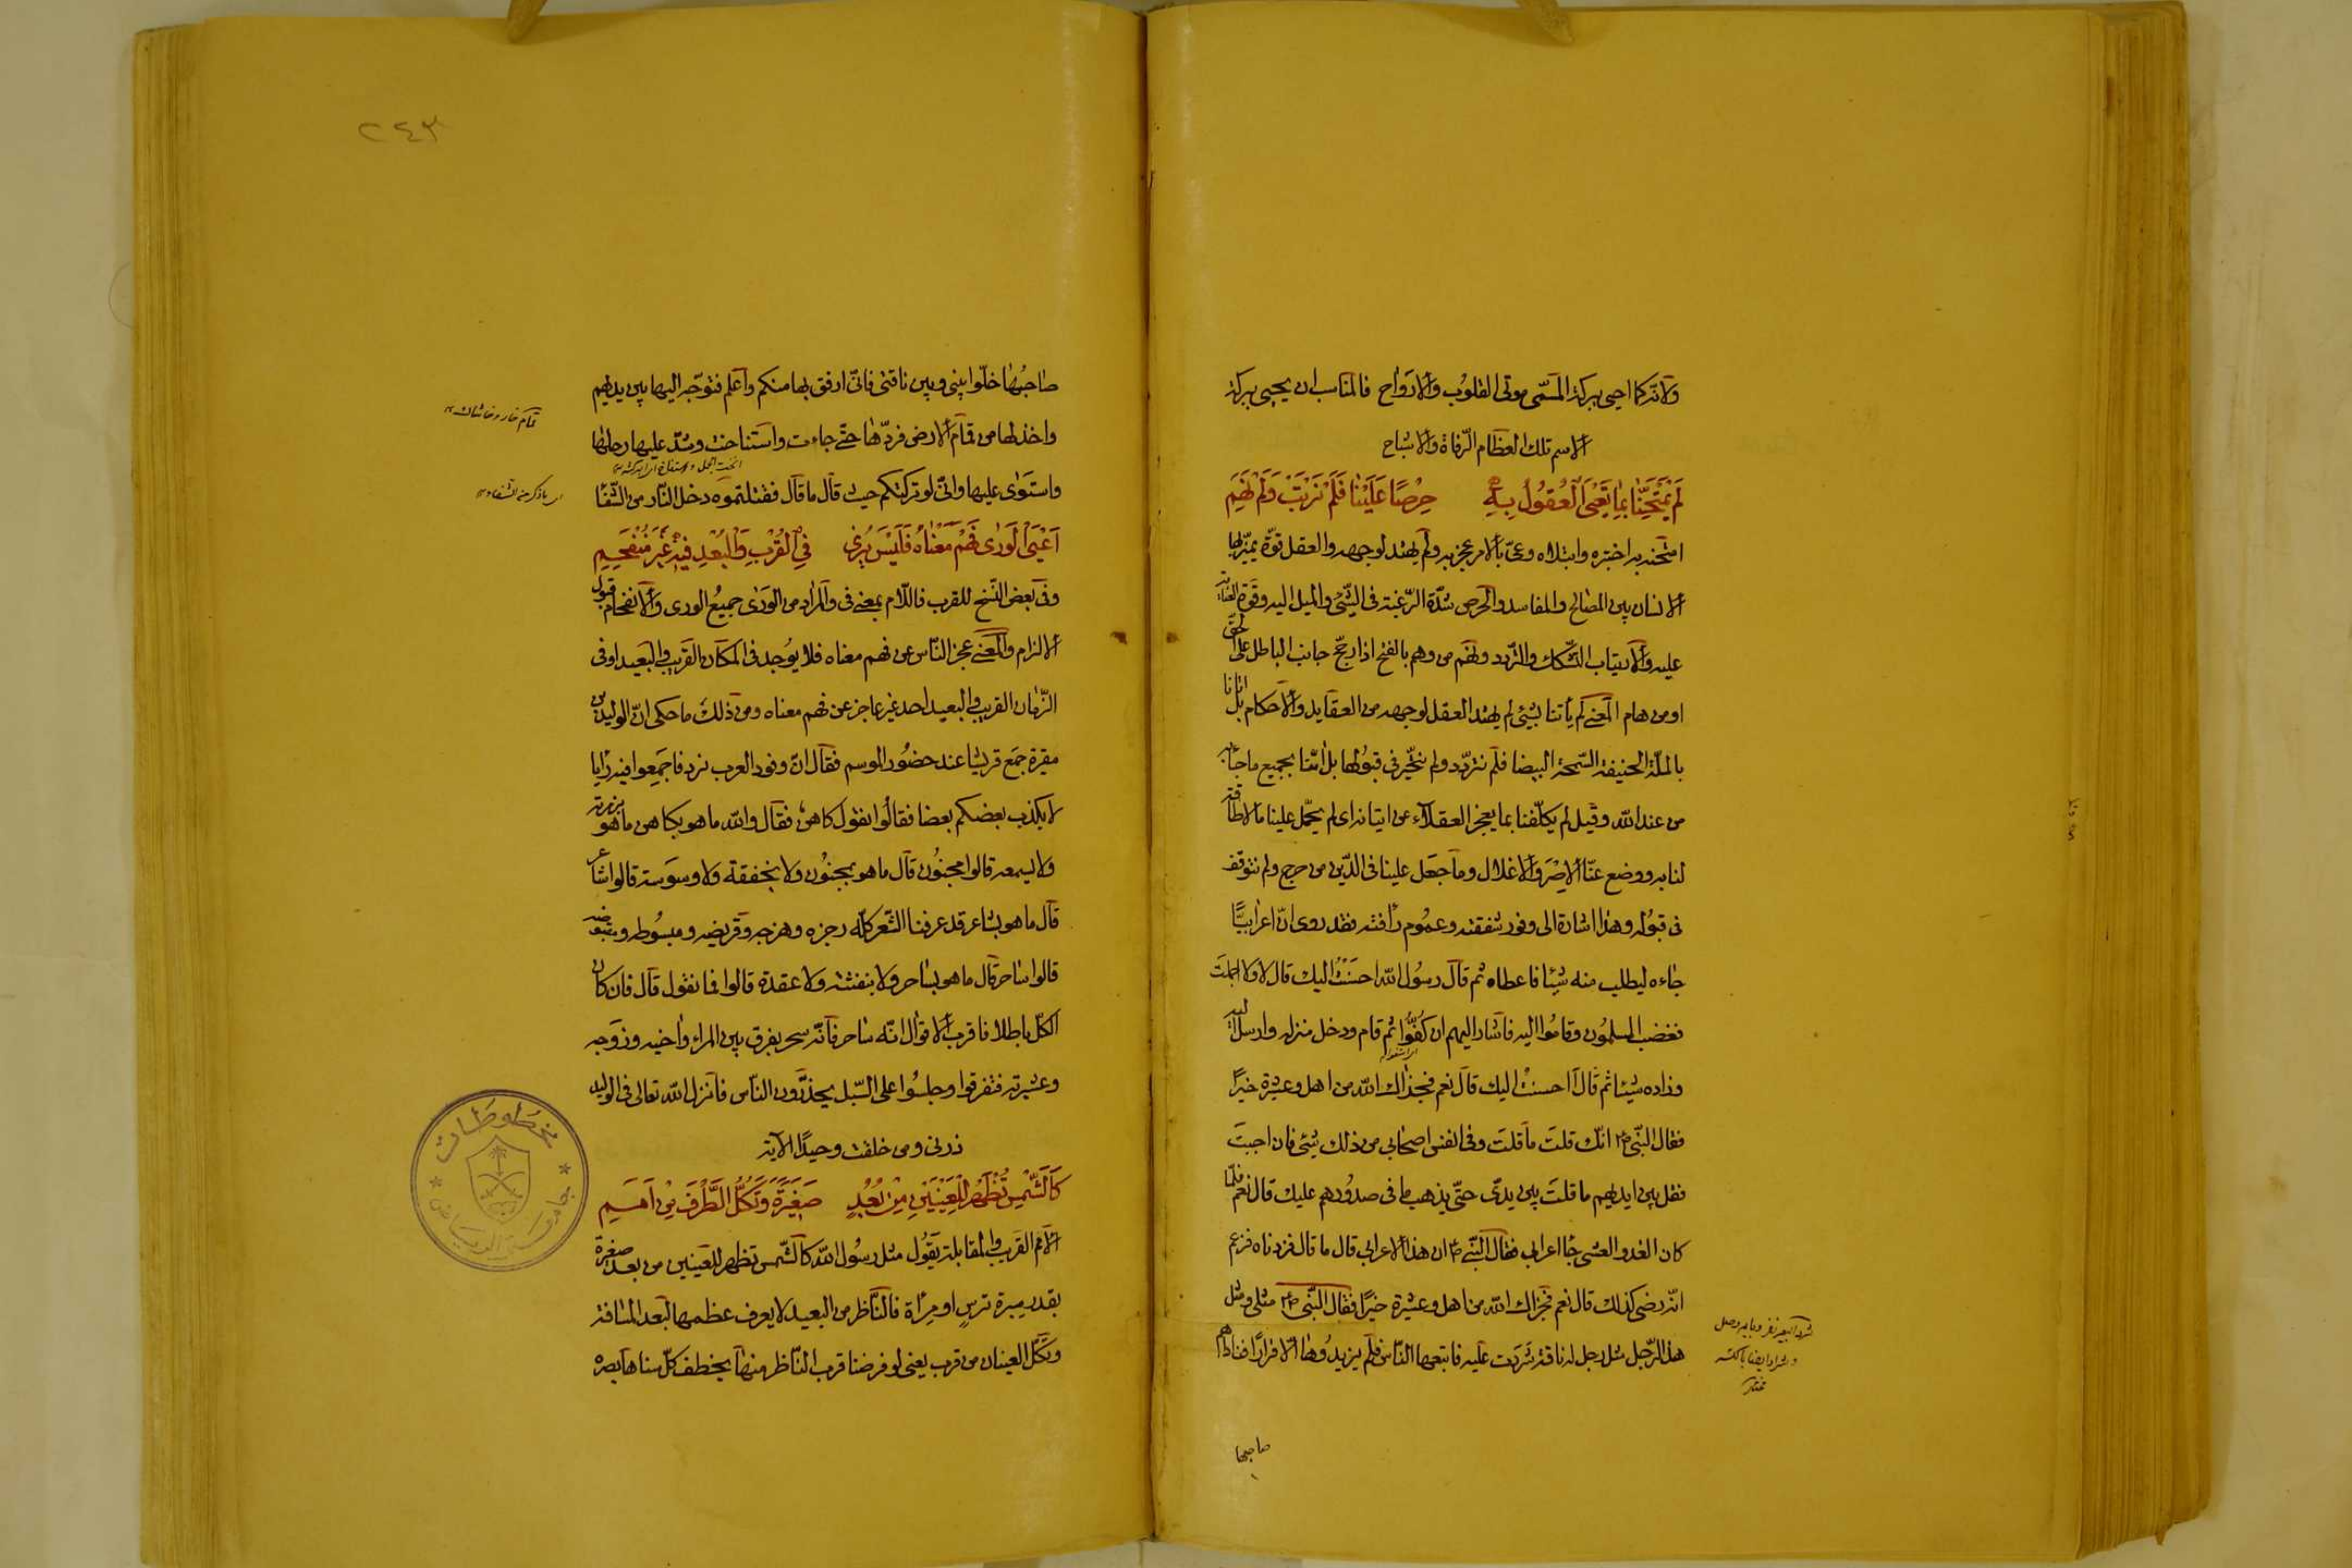 ولانه كما احيى ببركة المسمّى موتى القلوب والارواح فالمناسب ان يحيى ببركة
الاسم تلك العظام الرفاة والاشباح
لَمْ يَمْتَحِنَّا بِمَا تَعْيَى الْعُقُولُ بِهِ حِرْصًا عَلَيْنَا فَلَمْ نَرْتَبْ وَلَمْ نَهِمِ
امتحنه به اختبره وابتلاه وعىّ بالامر عجز به ولم يهتد لوجهه والعقل قوّة يميّز بها
الانسان بين المصالح والمفاسد والحرص شدّة الرّغبة فى الشئ والميل اليه وقوة
عليه والارتياب التشكك والتردد ونهم من وهم بالفتح اذا رجّح جانب الباطل على الحق
او من هام المعنى لم يأتنا بشئ لم يهتد العقل لوجهه من العقايد والاحكام بل اتانا
بالملّة الحنيفة السّمحة البيضا فلم نتردّد ولم نتحيّر فى قبولها بل امنّا بجميع ما جاء به
من عند الله وقيل لم يكلّفنا بما يعجز العقلاء عن اتيانه اى لم يحمّل علينا ما لا طاقة
لنا به ووضع عنّا الاصر والاغلال وما جعل علينا فى الدّين من حرج ولم نتوقف
فى قبوله وهذا اشارة الى وفور شفقته وعموم رأفته فقد روى انّ اعرابيّا
جاءه ليطلب منه شيئا فاعطاه ثم قال رسول الله احسنت اليك قال لا ولا اجملت
فغضب المسلمون وقاموا اليه فاشار اليهم ان كفّوا ثم قام ودخل منزله وارسل اليه
وزاده شيئا ثم قال احسنت اليك قال نعم فجزاك الله من اهل وعشيرة خيرًا
فقال النّبى انّك قلت ما قلت وفى انفس اصحابى من ذلك شئ فان احببت
فقل بين ايديهم ما قلت بين يدىّ حتّى يذهب ما فى صدورهم عليك قال نعم فلمّا
كان الغد والعشى جا اعرابى فقال النّبى ان هذا الاعرابى قال ما قال فزدناه فزعم
انّه رضى كذلك قال نعم فجزاك الله من اهل وعشيرة خيرًا فقال النّبى مثلى ومثل
هذا الرّجل مثل رجل له ناقة شردت عليه فاتبعها النّاس فلم يزيدوها الّا فرارًا فناداهم
صاحبها
٢٤٣
صاحبها خلّوا بينى وبين ناقتى فانّى ارفق بها منكم واعلم فتوجّه اليها بين يديهم
واخذ لها من قمام الارض فردّها حتّى جاءت واستناخت وشدّ عليها رحلها
واستوى عليها وانّى لو تركتكم حيث قال ما قال فقتلتموه دخل النّار من الشّفا
اَعْيَى الْوَرٰى فَهْمُ مَعْنَاهُ فَلَيْسَ يُرٰى فِى الْقُرْبِ وَالْبُعْدِ فِيهِ غَيْرُ مُنْفَحِمِ
وفى بعض النّسخ للقرب فاللّام بمعنى فى والمراد من الورى جميع الورى والانفحام قبول
الالزام والمعنى عجز النّاس عن فهم معناه فلا يوجد فى المكان القريب والبعيد او فى
الزّمان القريب والبعيد احد غير عاجز عن فهم معناه ومن ذلك ما حكى انّ الوليد بن
مغيرة جمع قريشا عند حضور الموسم فقال انّ وفود العرب ترد فاجمعوا فيه رأيا
لا يكذب بعضكم بعضا فقالوا نقول كاهن فقال والله ما هو بكاهن ما هو بزمزمته
ولا بسجعه قالوا مجنون قال ما هو بمجنون ولا بخنقه ولا وسوسته قالوا شاعر
قال ما هو بشاعر قد عرفنا الشّعر كلّه رجزه وهزجه وقريضه ومبسوطه ومقبوضه
قالوا ساحر قال ما هو بساحر ولا بنفثه ولا عقده قالوا فما نقول قال فان كان
الكلّ باطلا فاقرب الاقوال انّه ساحر فانّه سحر يفرق بين المرء واخيه وزوجه
وعشيرته فتفرقوا وجلسوا على السّبل يحذّرون النّاس فانزل الله تعالى فى الوليد
ذرنى ومن خلقت وحيدًا الآية
كَالشَّمْسِ تَظْهَرُ لِلْعَيْنَيْنِ مِنْ بُعُدٍ صَغِيرَةً وَتُكِلُّ الطَّرْفَ مِنْ اَمَمِ
الامم القريب والمقابلة يقول مثل رسول الله كالشّمس تظهر للعينين من بعد صغيرة
بقدر ترس او مرأة فالنّاظر من البعيد لا يعرف عظمها لبعد المسافة
وتكلّ العينان من قرب يعنى لو فرضنا قرب النّاظر منها يخطف كلّ سناها بصره
مخطوطات
جامعة الرياض